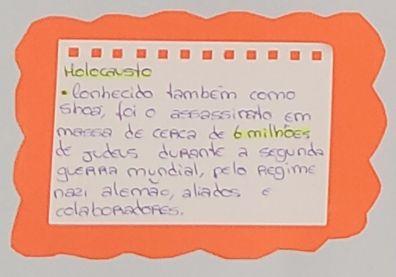 Holocausto
• Conhecido também como
shoá, foi o assassinato em
massa de cerca de 6 milhões
de judeus durante a segunda
guerra mundial, pelo regime
nazi alemão, aliados e
colaboradores.